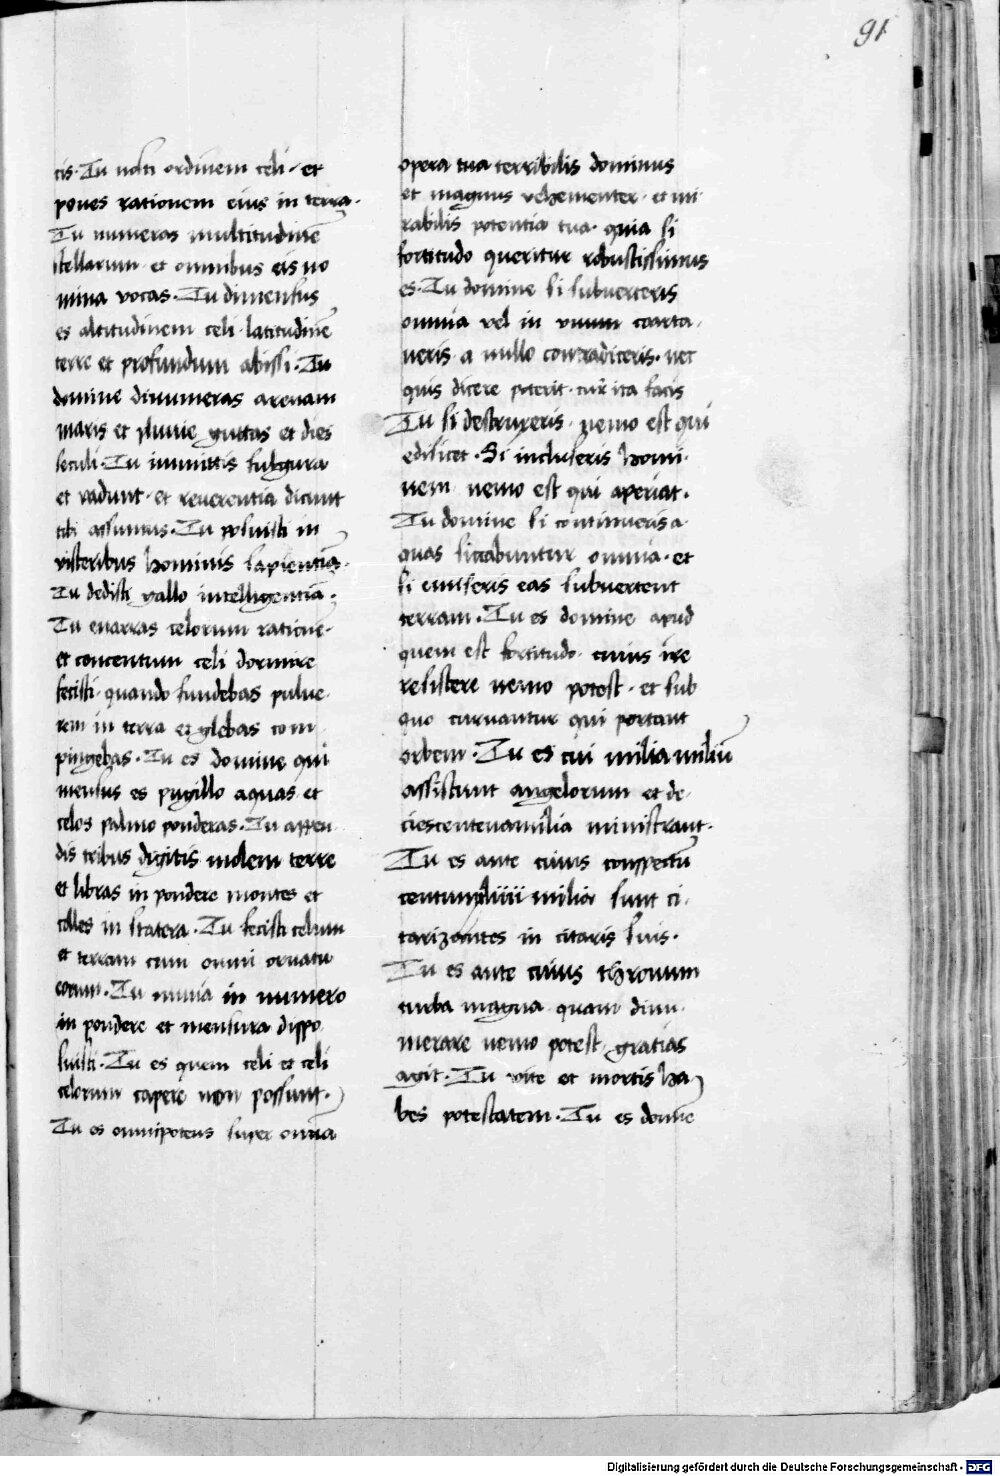 91
tis· Tu nosti ordinem celi· et
pones rationem eius in terra·
Tu numeras multitudinē
stellarum· et omnibus eis no
mina vocas· Tu dimensus
es altitudinem celi· latitudinē
terre et profundum abissi· Tu
domine dinumeras arenam
maris et pluuie guttas et dies
seculi· Tu immittis fulgura
et vadunt· et reuerentia dicunt
tibi assumus· Tu posuisti in
visceribus hominis sapientiā·
Tu dedisti gallo intelligentiā·
Tu enarras celorum rationē·
et concentum celi dormire
fecisti· quando fundebas pulue
rem in terra et glebas com
pingebas· Tu es domine qui
mensus es pugillo aquas et
celos palmo ponderas· Tu appen
dis tribus digitis molem terre
et libras in pondere montes et
colles in statera· Tu fecisti celum
et terram cum omni ornatu
eorum· Tu omnia in numero
in pondere et mensura dispo
suisti· Tu es quem celi et celi
celorum capere non possunt·
Tu es omnipotens super omnia
opera tua terribilis dominus
et magnus vehementer· et mi
rabilis potentia tua· quia si
fortitudo queritur robustissimus
es· Tu domine si subuerteris
omnia vel in vnum coarta
ueris a nullo contradiceris· nec
quis dicere poterit· cur ita facis
Tu si destruxeris· nemo est qui
edificet· Si incluseris homi
nem nemo est qui aperiat·
Tu domine si continueris a
quas siccabuntur omnia· et
si emiseris eas subuertent
terram· Tu es domine apud
quem est fortitudo· cuius ire
resistere nemo potest· et sub
quo curuantur qui portant
orbem· Tu es cui milia miliū
assistunt angelorum et de
ciescentenamilia ministrant·
Tu es ante cuius conspectū
centumxliiii milia sunt ci
tarizantes in citaris suis·
Tu es ante cuius thronum
turba magna quam dinu
merare nemo potest· gratias
agit· Tu vite et mortis ha
bes potestatem· Tu es domīe
Digitalisierung gefördert durch die Deutsche Forschungsgemeinschaft - DFG